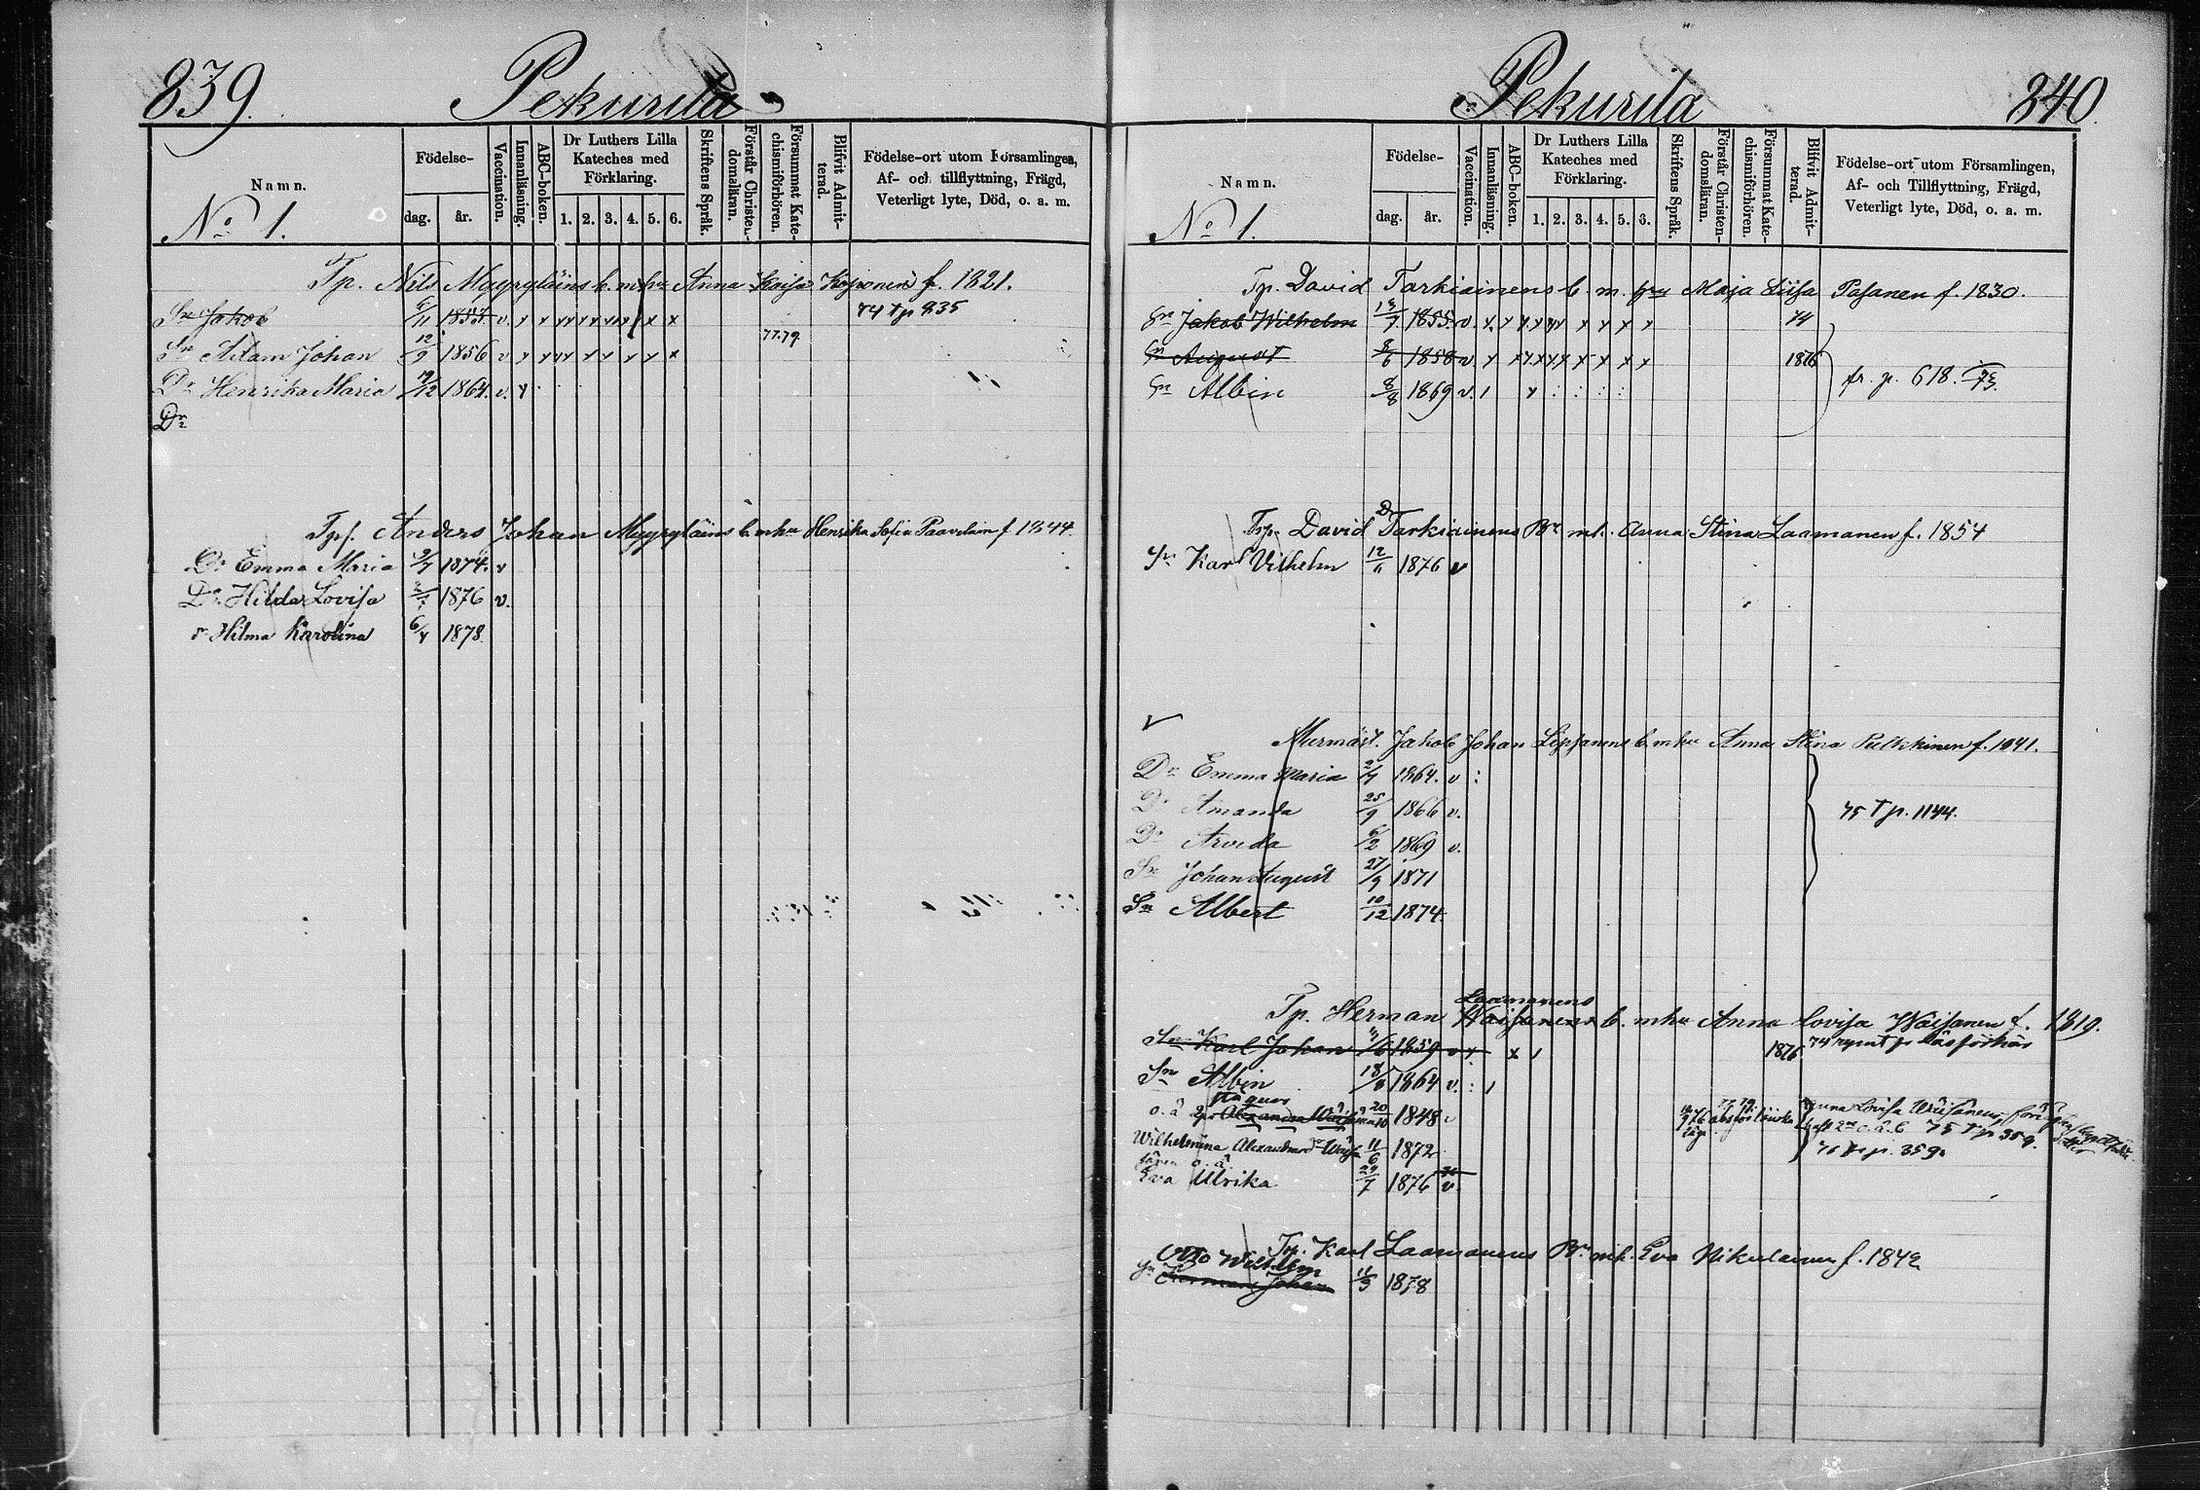 839.
Pekurila
Namn.
No 1.
Födelse-
dag.
år.
Vaccination.
Innanläsning.
ABC-boken.
Dr Luthers Lilla
Kateches med
Förklaring.
1. 2. 3. 4. 5. 6.
Skriftens Språk.
Förstår Christen-
domsläran.
Försummat Kate-
chismiförhören.
Blifvit Admit-
terad.
Födelse-ort utom Församlingen,
Af- och tillflyttning, Frägd,
Veterligt lyte, Död, o. a. m.
Tp. Nils Myyryläins b. m. hu Anna Kaisa Koponen f. 1821.
Sn Jakob 11 1853 v. x x x x x x x x 74 T p 835
Sn Adam Johan 12/9 1856 v x x x x x x x x 77.79
Dr Henrika Maria 19/12 1864. v. x
Dr
Tpf. Anders Johan Myyryläins b. m hu Henrika Sofia Paavolain f 1844.
Dr Emma Maria 9/7 1874. v
Dr Hilda Lovisa 1876 v.
Dr Hilma Karolina 6/4 1878.
840.
Pekurila
Namn.
No 1.
Födelse-
dag.
år.
Vaccination.
Innanläsning.
ABC-boken.
Dr Luthers Lilla
Kateches med
Förklaring.
1. 2. 3. 4. 5. 6.
Skriftens Språk.
Förstår Christen-
domsläran.
Försummat Kate-
chismiförhören.
Blifvit Admit-
terad.
Födelse-ort utom Församlingen,
Af- och Tillflyttning, Frägd,
Veterligt lyte, Död, o. a. m.
Tp. David Tarkiainens b. m. hru Maja Liisa Pasanen f. 1830.
Sn Jakob Wilhelm 13/7 1855 v. x x x x x x x x x 74
Sn August 8/6 1858 v. x x x x x x x x x 1876
Sn Albin 8/8 1869 v. 1 x : : : : fr. p. 618.
Tp. David D Tarkiainens Br m h. Anna Stina Laamanen f. 1854
Sn Karl Vilhelm 12/11 1876 v
Murmäst. Jakob Johan Lipsanens b. m hu Anna Stina Pulkkinen f. 1841.
Dr Emma Maria 2/7 1864. v :
Dr Amanda 25/9 1866 v. 75 T p. 1144.
Dr Arvida 6/2 1869 v.
Sn Johan August 27/9 1871
Sn Albert 10/12 1874
Laamanens
Tp. Herman Wäisänens b. m hu Anna Lovisa Wäisänen f. 1819.
Sn Karl Johan 11/6 1859 v x x 1 1876
Sn Albin 18/8 1864 v. : 1
o. ä. Alexander 1848 v
Wilhelmina Alexandersdr 11/6 1872 p. 359.
o. ä.
Eva Ulrika 29/7 1876 v.
Tp. Karl Laamanens Br m h. Eva Nikulainen f. 1842
Otto Wilhelm
Sn Herman Johan 11/3 1878